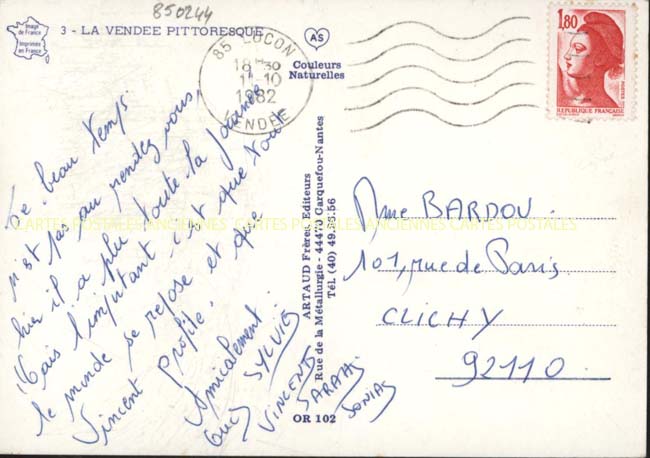 850244
Image
de France
Imprimée
en France
3 - LA VENDEE PITTORESQUE
AS
Couleurs
Naturelles
85 LUCON
18 H 30
1-10
1982
VENDEE
1,80
REPUBLIQUE FRANCAISE
POSTES
Le beau temps
n'est pas au rendez vous,
hier il a plu toute la journée
Mais l'important c'est que tout
le monde se repose et que
Vincent profite.
Amicalement.
Guy SYLVIE
VINCENT
SARAH
SONIA
ARTAUD Frères, Editeurs
Rue de la Métallurgie - 44470 Carquefou-Nantes
Tél. (40) 49.56
OR 102
Mme BARDOU
101, rue de Paris
CLICHY
92110
CARTES POSTALES ANCIENNES CARTES POSTALES ANCIENNES CARTES POSTALES